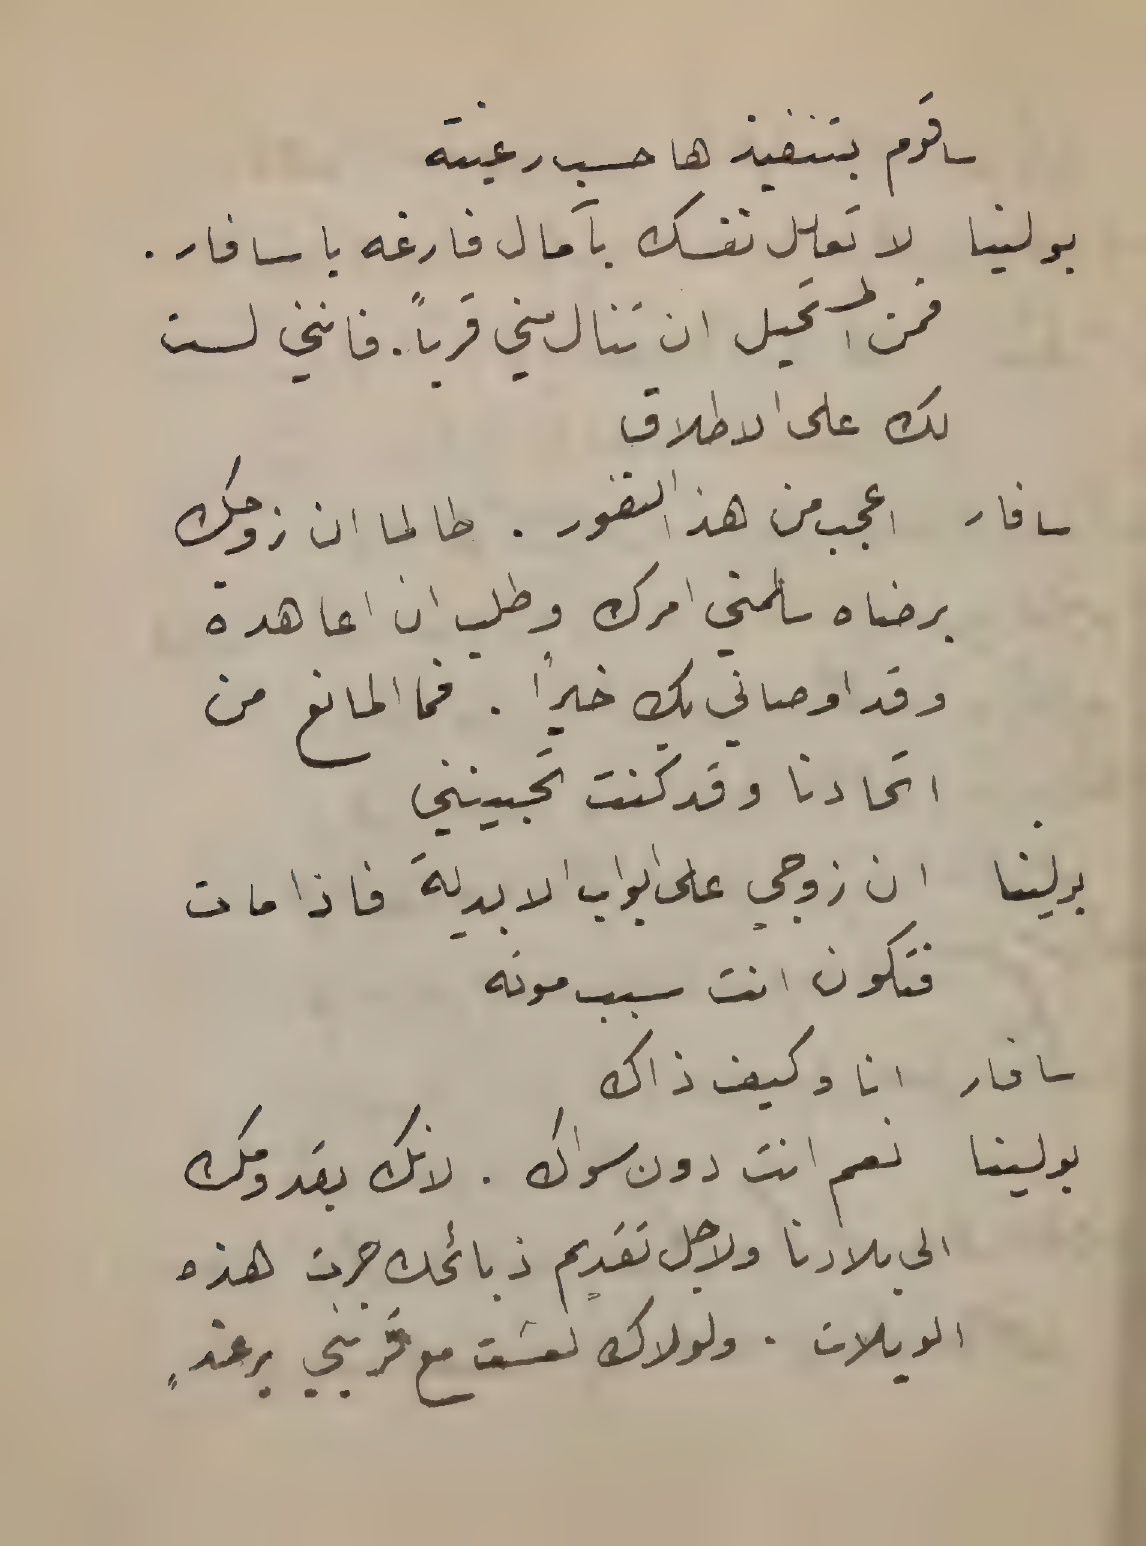 ساقوم بتنفيذها حسب رغبته
بولينا لا تعلل نفسك بآمال فارغه يا سافار .
فمن المستحيل ان تنال مني قرباً . فانني لست
لك على الاطلاق
سافار اعجب من هذا النفور . طالما ان زوجك
برضاه سلمني امرك وطلب ان اعاهدة
وقد اوصاني بك خيراً . فما المانع من
اتحادنا وقد كنت تحبينني
بولينا ان زوجي على ابواب الابدية فاذا مات
فتكون انت سبب موته
سافار انا وكيف ذاك
بولينا نعم انت دون سواك . لانك بقدومك
الى بلادنا ولاجل تقديم ذبائحك جرت هذه
الويلات . ولولاك لعشت مع قريني برغدٍ